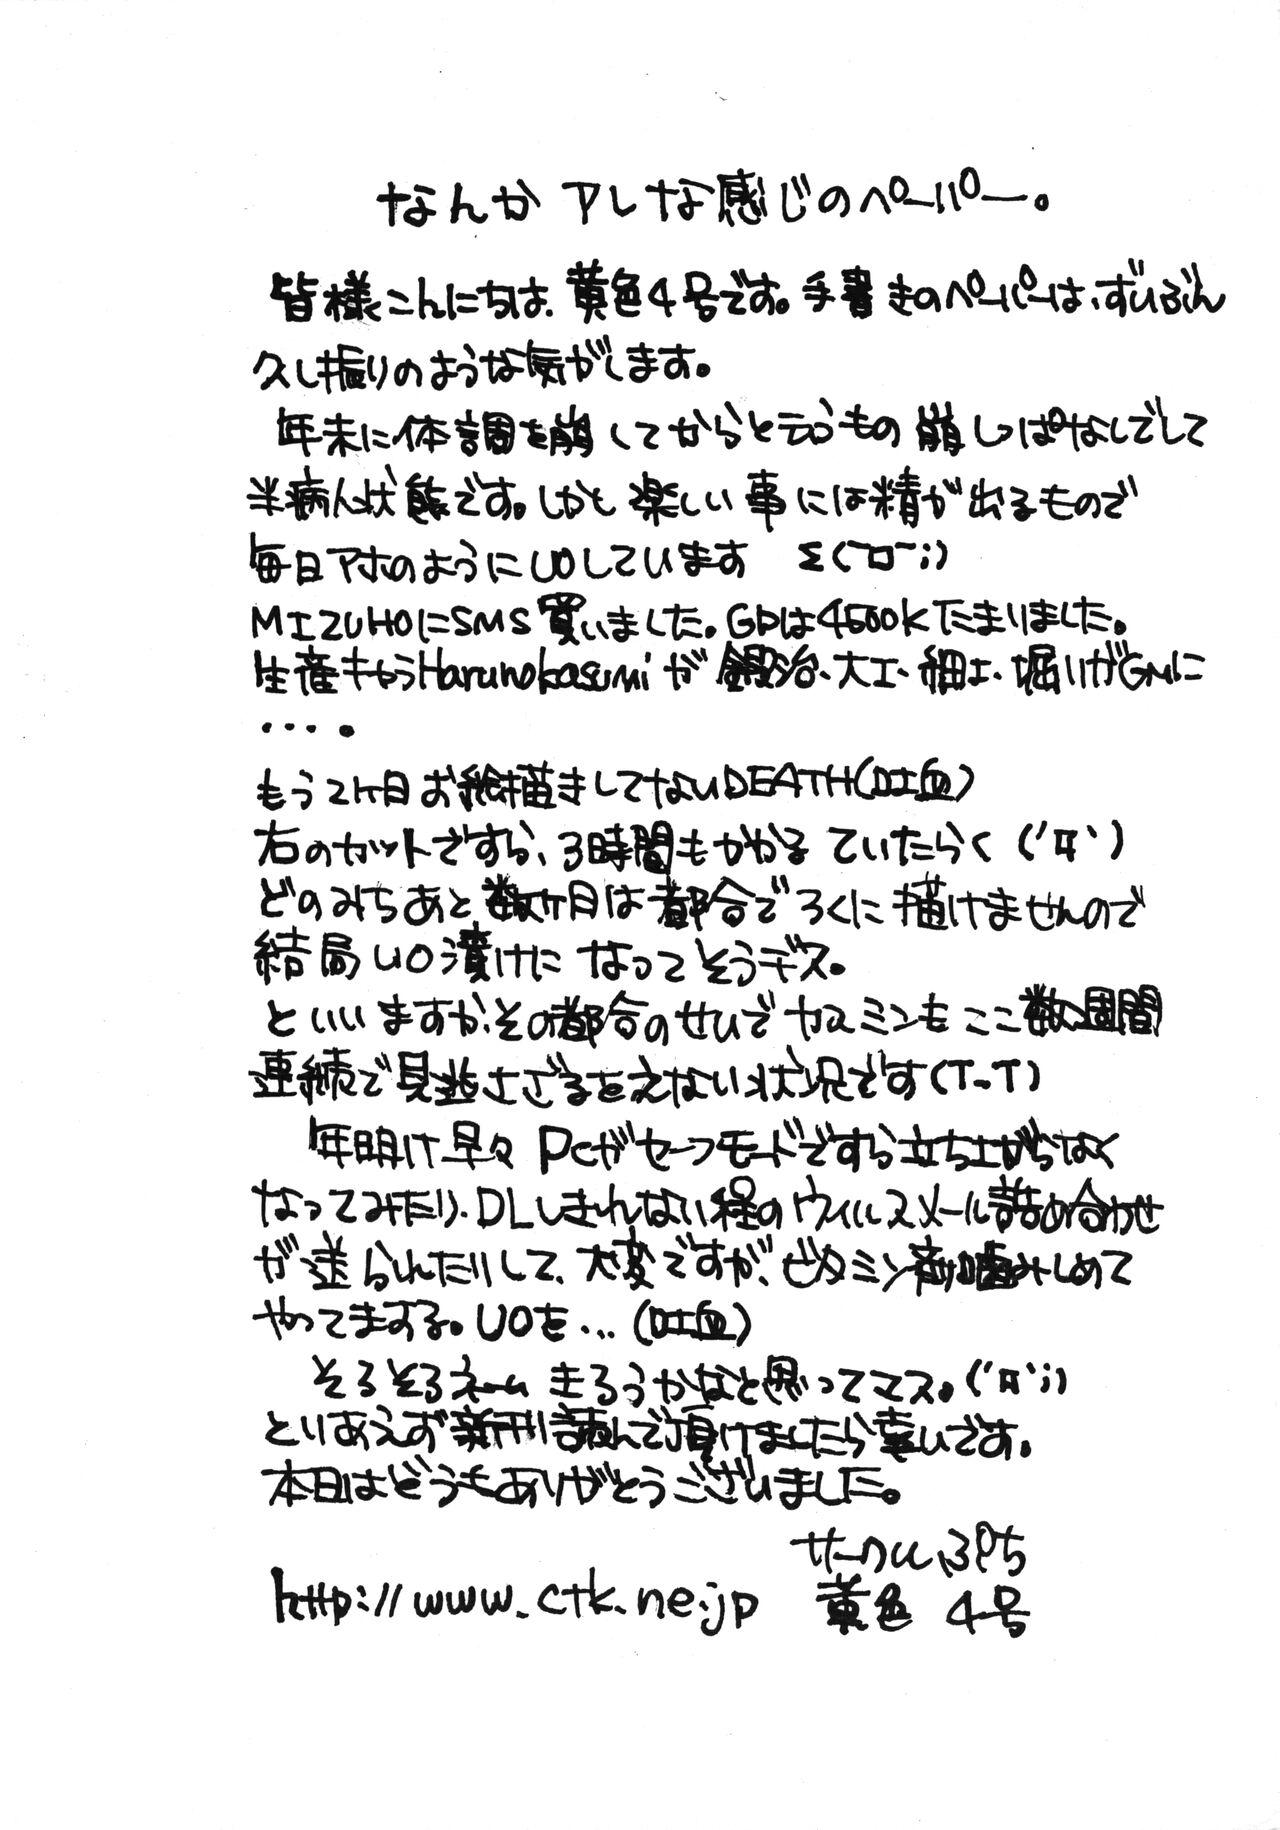 なんかアレな感じのペーパー。
皆様こんにちは、黄色4号です。手書きのペーパーは、ずいぶん
久し振りのような気がします。
年末に体調を崩してからと云うもの崩しっぱなしでして
半病人状態です。しかと楽しい事には精が出るもので
毎日アホのようにUOしています Σ(￣□￣;)
MIZUHOにSMS買いました。GPは4500Kたまりました。
生産キャラHarunokasumiが鍛冶、大工、細工、堀りがGMに
・・・・。
もう2ケ月お絵描きしてないDEATH(吐血)
右のカットですら、3時間もかかるていたらく(´Д｀)
どのみちあと数ケ月は都合でろくに描けませんので
結局UO漬けになってそうデス。
といいますか、その都合のせいでヤスミンもここ数週間
連続で見逃さざるをえない状況です(T-T)
年明け早々PCがセーフモードですら立ち上がらなく
なってみたり、DLしきれない程のウィルスメール詰め合わせ
が送られたりして、大変ですが、ビタミン剤噛みしめて
やってまする。UOを…(吐血)
そろそろネームきろうかなと思ってマス。(´Д｀;)
とりあえず新刊読んで頂けましたら幸いです。
本日はどうもありがとうございました。
サークルぷち
http://www.ctk.ne.jp 黄色 4号